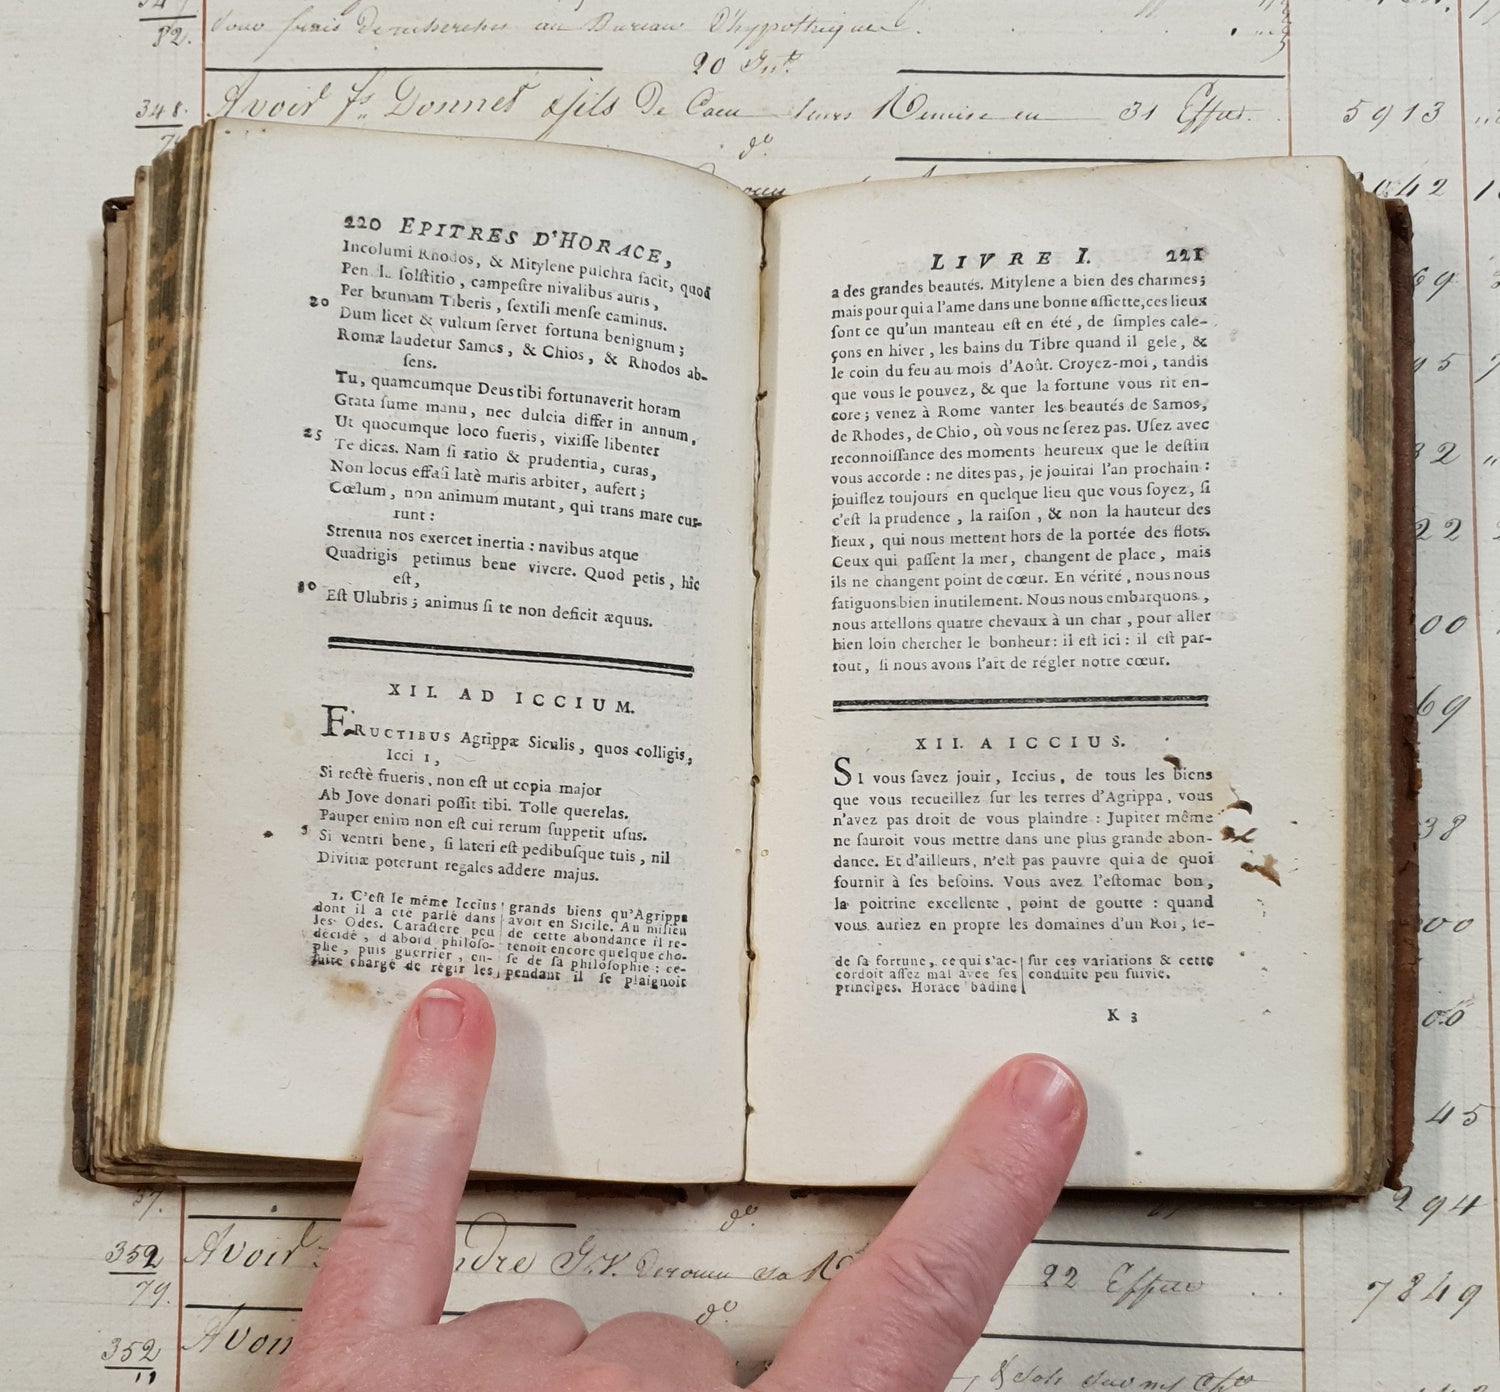 82.
20
348. Avoir fs Donnet & fils De Caen leurs Remise en 31 Effets 5913
do
220 EPITRES D'HORACE,
Incolumi Rhodos, & Mitylene pulchra facit, quod
Pen. la ſolſtitio, campeſtre nivalibus auris,
20 Per brumam Tiberis, ſextili menſe caminus.
Dum licet & vultum ſervet fortuna benignum ;
Romæ laudetur Samos, & Chios, & Rhodos ab-
ſens.
Tu, quamcumque Deus tibi fortunaverit horam
Grata ſume manu, nec dulcia differ in annum,
25 Ut quocumque loco fueris, vixiſſe libenter
Te dicas. Nam ſi ratio & prudentia, curas,
Non locus effuſi latè maris arbiter, aufert ;
Cœlum, non animum mutant, qui trans mare cur-
runt :
Strenua nos exercet inertia : navibus atque
Quadrigis petimus bene vivere. Quod petis, hîc
eſt,
30 Eſt Ulubris ; animus ſi te non deficit æquus.
XII. AD ICCIUM.
FRUCTIBUS Agrippæ Siculis, quos colligis,
Icci 1,
Si rectè frueris, non eſt ut copia major
Ab Jove donari poſſit tibi. Tolle querelas.
Pauper enim non eſt cui rerum ſuppetit uſus.
5 Si ventri bene, ſi lateri eſt pedibuſque tuis, nil
Divitiæ poterunt regales addere majus.
1. C'eſt le même Iccius
dont il a été parlé dans
les Odes. Caractere peu
décidé, d'abord philoſo-
phe, puis guerrier, en-
ſuite chargé de régir les
grands biens qu'Agrippa
avoit en Sicile. Au milieu
de cette abondance il re-
tenoit encore quelque cho-
ſe de ſa philoſophie : ce-
pendant il ſe plaignoit
LIVRE I. 221
a des grandes beautés. Mitylene a bien des charmes ;
mais pour qui a l'ame dans une bonne aſſiette, ces lieux
ſont ce qu'un manteau eſt en été, de ſimples cale-
çons en hiver, les bains du Tibre quand il gele, &
le coin du feu au mois d'Août. Croyez-moi, tandis
que vous le pouvez, & que la fortune vous rit en-
core ; venez à Rome vanter les beautés de Samos,
de Rhodes, de Chio, où vous ne ſerez pas. Uſez avec
reconnoiſſance des moments heureux que le deſtin
vous accorde : ne dites pas, je jouirai l'an prochain :
jouiſſez toujours en quelque lieu que vous ſoyez, ſi
c'eſt la prudence, la raiſon, & non la hauteur des
lieux, qui nous mettent hors de la portée des flots.
Ceux qui paſſent la mer, changent de place, mais
ils ne changent point de cœur. En vérité, nous nous
fatiguons bien inutilement. Nous nous embarquons,
nous attellons quatre chevaux à un char, pour aller
bien loin chercher le bonheur : il eſt ici : il eſt par-
tout, ſi nous avons l'art de régler notre cœur.
XII. A ICCIUS.
SI vous ſavez jouir, Iccius, de tous les biens
que vous recueillez ſur les terres d'Agrippa, vous
n'avez pas droit de vous plaindre : Jupiter même
ne ſauroit vous mettre dans une plus grande abon-
dance. Et d'ailleurs, n'eſt pas pauvre qui a de quoi
fournir à ſes beſoins. Vous avez l'eſtomac bon,
la poitrine excellente, point de goutte : quand
vous auriez en propre les domaines d'un Roi, ſe-
de ſa fortune, ce qui s'ac-
cordoit aſſez mal avec ſes
principes. Horace badine
ſur ces variations & cette
conduite peu ſuivie.
K 3
45
294
do
352 Avoir 22 7849
79.
do
352 Avoir